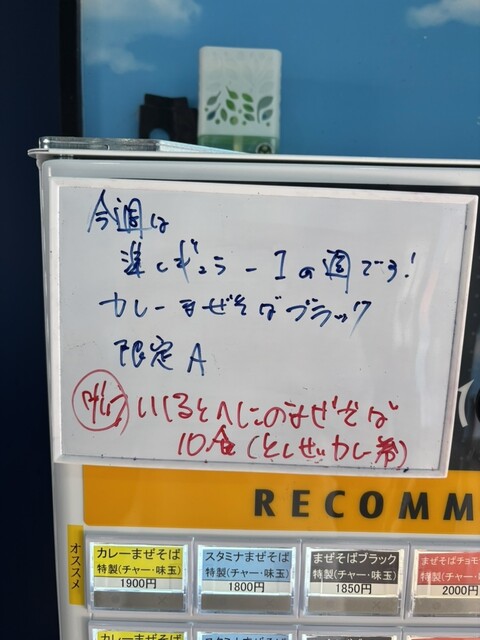 今週は
ーIの週です!
カレーまぜそばブラック
限定 A
のまぜそば
10食(
RECOMM
オススメ
カレーまぜそば
特製(チャー・味玉)
1900円
スタミナまぜそば
特製(チャー・味玉)
1800円
まぜそばブラック
特製(チャー・味玉)
1850円
まぜそばチョモ
特製(チャー・味玉)
2000円
カレーまぜそば